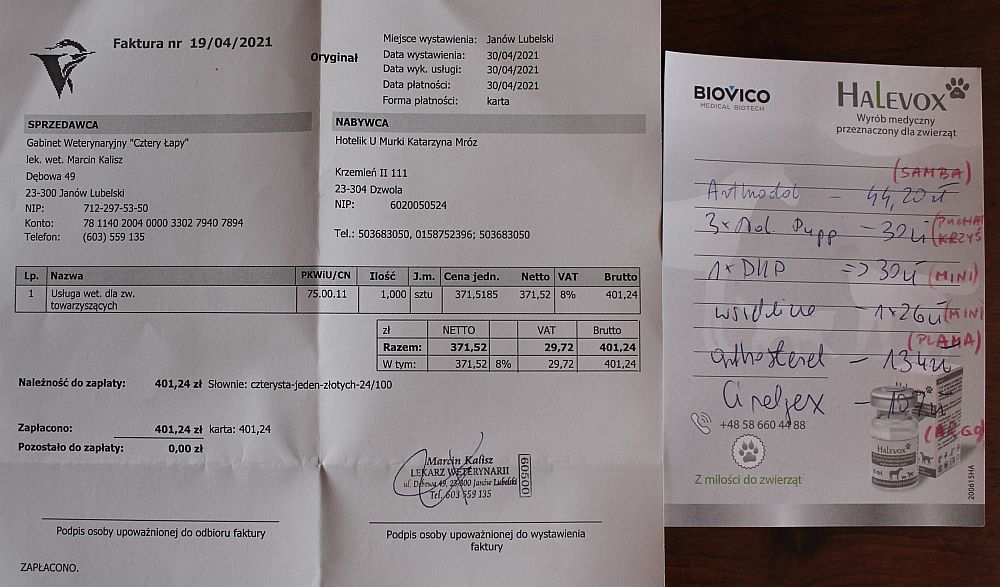 Faktura nr 19/04/2021
Oryginał
Miejsce wystawienia: Janów Lubelski
Data wystawienia: 30/04/2021
Data wyk. usługi: 30/04/2021
Data płatności: 30/04/2021
Forma płatności: karta
SPRZEDAWCA
Gabinet Weterynaryjny "Cztery Łapy"
lek. wet. Marcin Kalisz
Dębowa 49
23-300 Janów Lubelski
NIP: 712-297-53-50
Konto: 78 1140 2004 0000 3302 7940 7894
Telefon: (603) 559 135
NABYWCA
Hotelik U Murki Katarzyna Mróz
Krzemień II 111
23-304 Dzwola
NIP: 6020050524
Tel.: 503683050, 0158752396; 503683050
Lp. Nazwa PKWiU/CN Ilość J.m. Cena jedn. Netto VAT Brutto
1 Usługa wet. dla zw. 75.00.11 1,000 sztu 371,5185 371,52 8% 401,24
towarzyszących
zł NETTO VAT Brutto
Razem: 371,52 29,72 401,24
W tym: 371,52 8% 29,72 401,24
Należność do zapłaty: 401,24 zł Słownie: czterysta-jeden-złotych-24/100
Zapłacono: 401,24 zł karta: 401,24
Pozostało do zapłaty: 0,00 zł
Marcin Kalisz
LEKARZ WETERYNARII
ul. Dębowa 49, 23-300 Janów Lubelski
Tel. 603 559 135
60500
Podpis osoby upoważnionej do odbioru faktury
Podpis osoby upoważnionej do wystawienia
faktury
ZAPŁACONO.
BIOVICO
MEDICAL BIOTECH
HALEVOX
Wyrób medyczny
przeznaczony dla zwierząt
(SAMBA)
Arthodol - 44,20 zł
3x Nd. Pupp - 30 zł (PUCHAT KRZYŚ
1x DHP => 30 zł (MINI)
- 1x26 zł (MINI
(PLAMA)
- 134 zł
Cirelgex - 107 zł
(ARGO
+48 58 660 44 88
HALEVOX
Z miłości do zwierząt
200615HA